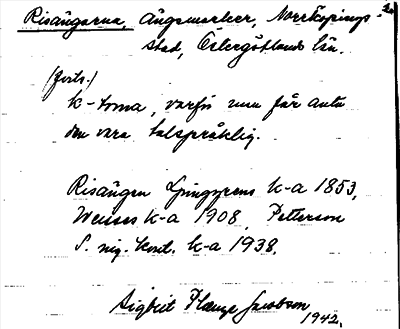 Risängarna, Ängsmarker, Norrköpings
stad, Östergötlands län.
(forts.)
k-torna, varför man får anta
den vara talspråklig.
Risängen Ljunggrens k-a 1853,
Weisses k-a 1908, Petterson
S. reg. kont. k-a 1938.
Sigbrit Plænge Jacobson
1942.